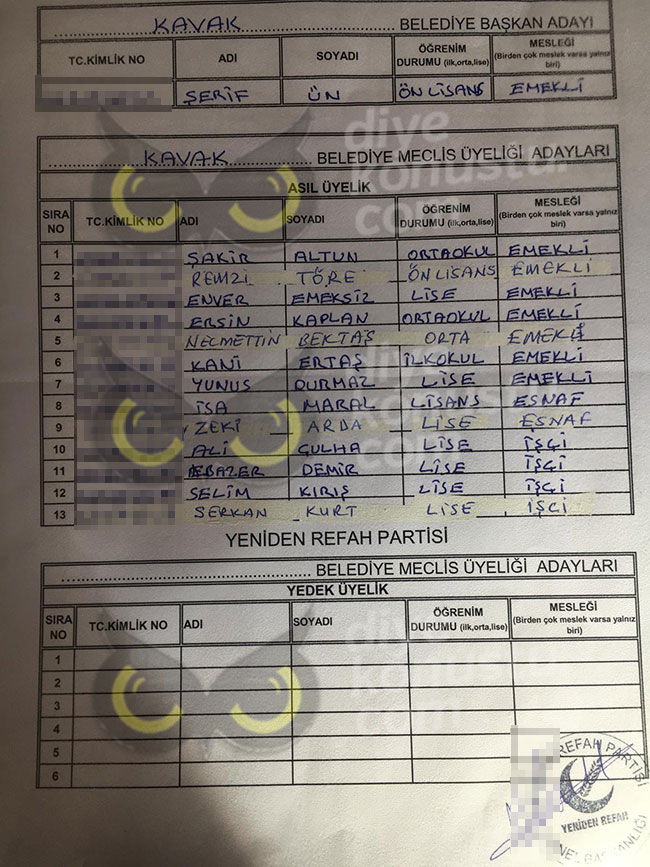 KAVAK BELEDİYE BAŞKAN ADAYI
TC.KİMLİK NO ADI SOYADI ÖĞRENİM DURUMU (ilk,orta,lise) MESLEĞİ (Birden çok meslek varsa yalnız biri)
ŞERİF ÜN ÖN LİSANS EMEKLİ
KAVAK BELEDİYE MECLİS ÜYELİĞİ ADAYLARI
ASIL ÜYELİK
SIRA NO TC.KİMLİK NO ADI SOYADI ÖĞRENİM DURUMU (ilk,orta,lise) MESLEĞİ (Birden çok meslek varsa yalnız biri)
1 ŞAKİR ALTUN ORTAOKUL EMEKLİ
2 REMZİ TÖRE ÖNLİSANS EMEKLİ
3 ENVER EMEKSİZ LİSE EMEKLİ
4 ERSİN KAPLAN ORTAOKUL EMEKLİ
5 NECMETTİN BEKTAŞ ORTA EMEKLİ
6 KANİ ERTAŞ İLKOKUL EMEKLİ
7 YUNUS DURMAZ LİSE EMEKLİ
8 İSA MARAL LİSANS ESNAF
9 ZEKİ ARDA LİSE ESNAF
10 ALİ GULHA LİSE İŞÇİ
11 EBAZER DEMİR LİSE İŞÇİ
12 SELİM KIRIŞ LİSE İŞÇİ
13 SERKAN KURT LİSE İŞÇİ
YENİDEN REFAH PARTİSİ
BELEDİYE MECLİS ÜYELİĞİ ADAYLARI
YEDEK ÜYELİK
SIRA NO TC.KİMLİK NO ADI SOYADI ÖĞRENİM DURUMU (ilk,orta,lise) MESLEĞİ (Birden çok meslek varsa yalnız biri)
1
2
3
4
5
6
REFAH PARTİSİ
YENİDEN REFAH
diye
konustur
com